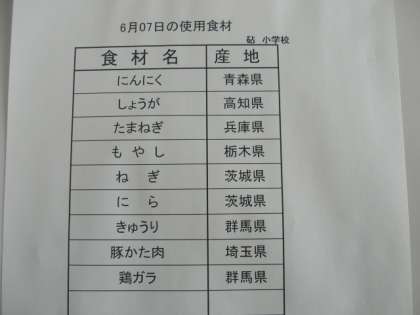 6月07日の使用食材
砧 小学校
食材名 産地
にんにく 青森県
しょうが 高知県
たまねぎ 兵庫県
もやし 栃木県
ねぎ 茨城県
にら 茨城県
きゅうり 群馬県
豚かた肉 埼玉県
鶏ガラ 群馬県